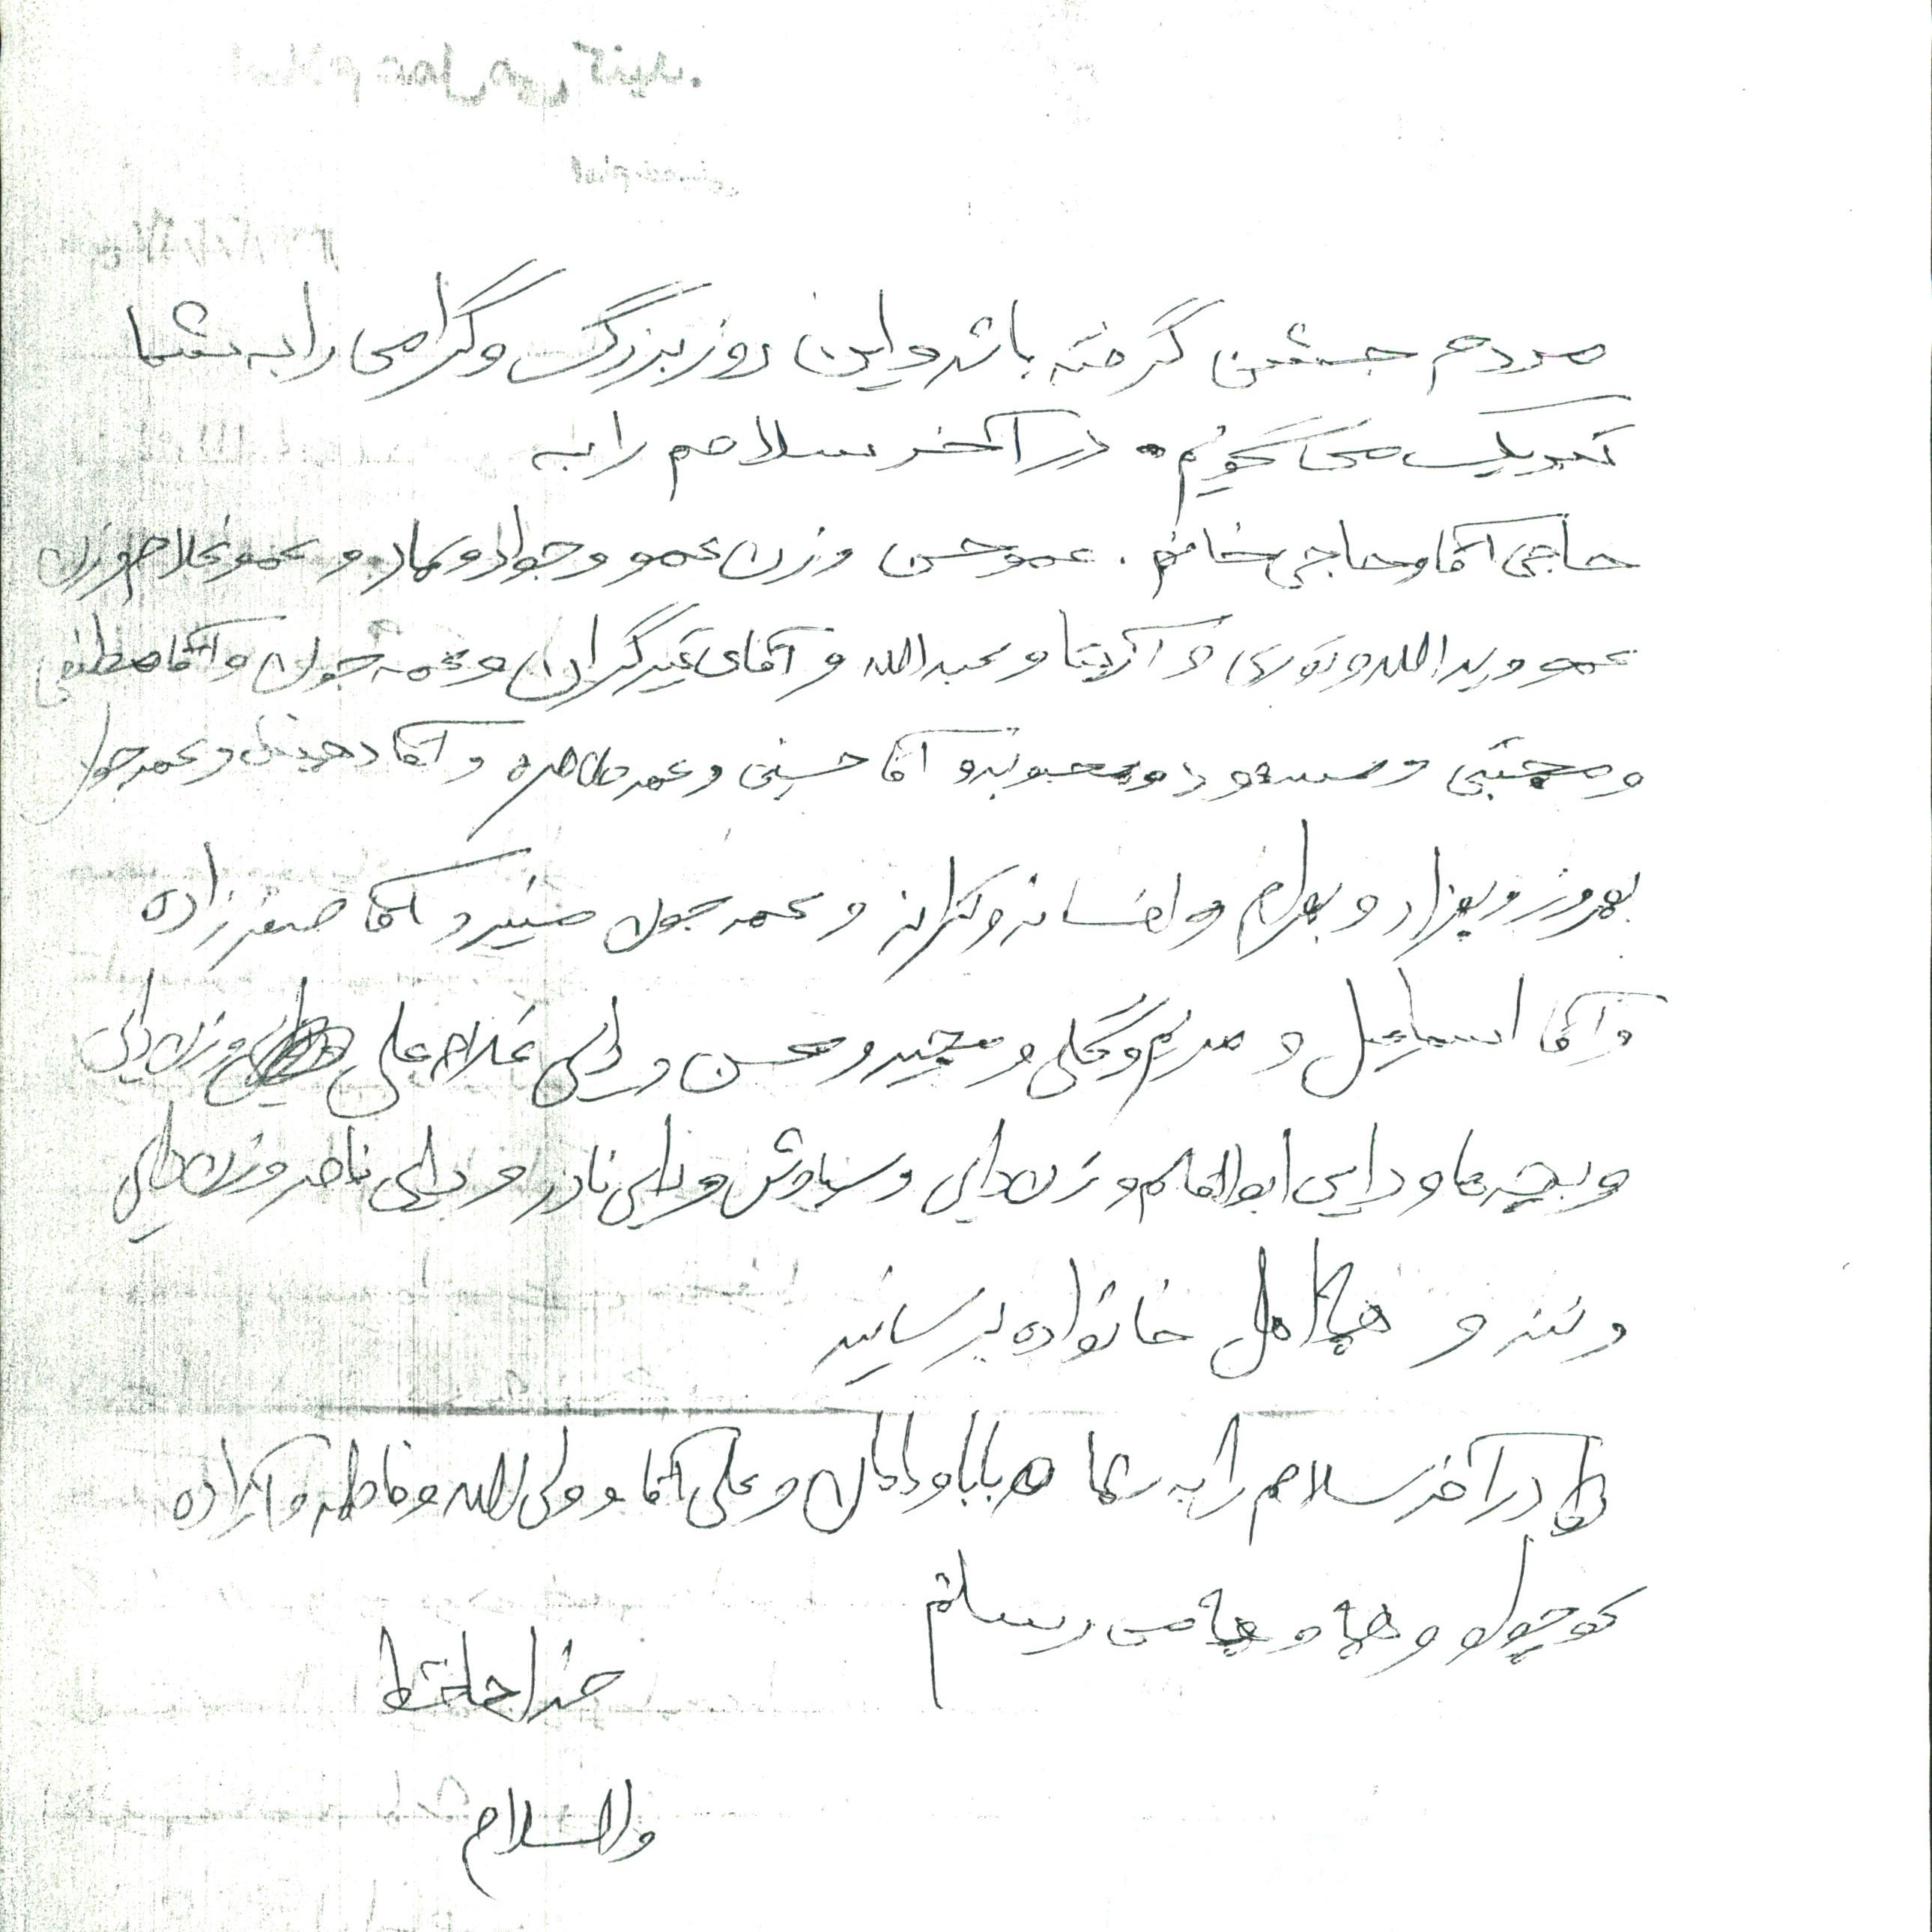 مردم جشن گرفته باشد و این روز بزرگ و گرامی را به شما
تبریک می گویم. در آخر سلامم را به
حاجی آقا و حاجی خانم. عمو حسن و زن عمو و جواد و عماد و عمو غلام و زن
عمو و یدالله و نوری و آزیتا و عبدالله و آقای و عمه جون و آقا مصطفی
و مجتبی و مسعود و محبوبه و آقا حسینی و عمه طاهره و آقا و عمه جون
بهروز و بهزاد و بهرام و افسانه و ترانه و عمه جون منیر و آقا صفرزاده
و آقا اسماعیل و مریم و گلی و مجید و محسن و دایی غلام علی و زن دایی
و بچه ها و دایی ابوالقاسم و زن دایی و سیاوش و دایی نادر و دایی ناصر و زن دایی
و ننه و همه اهل خانواده برسانید
در آخر سلامم را به شما بابا و مامان و علی آقا و ولی الله و فاطمه و آزاده
کوچولو و هما و می رسانم
خداحافظ
والسلام